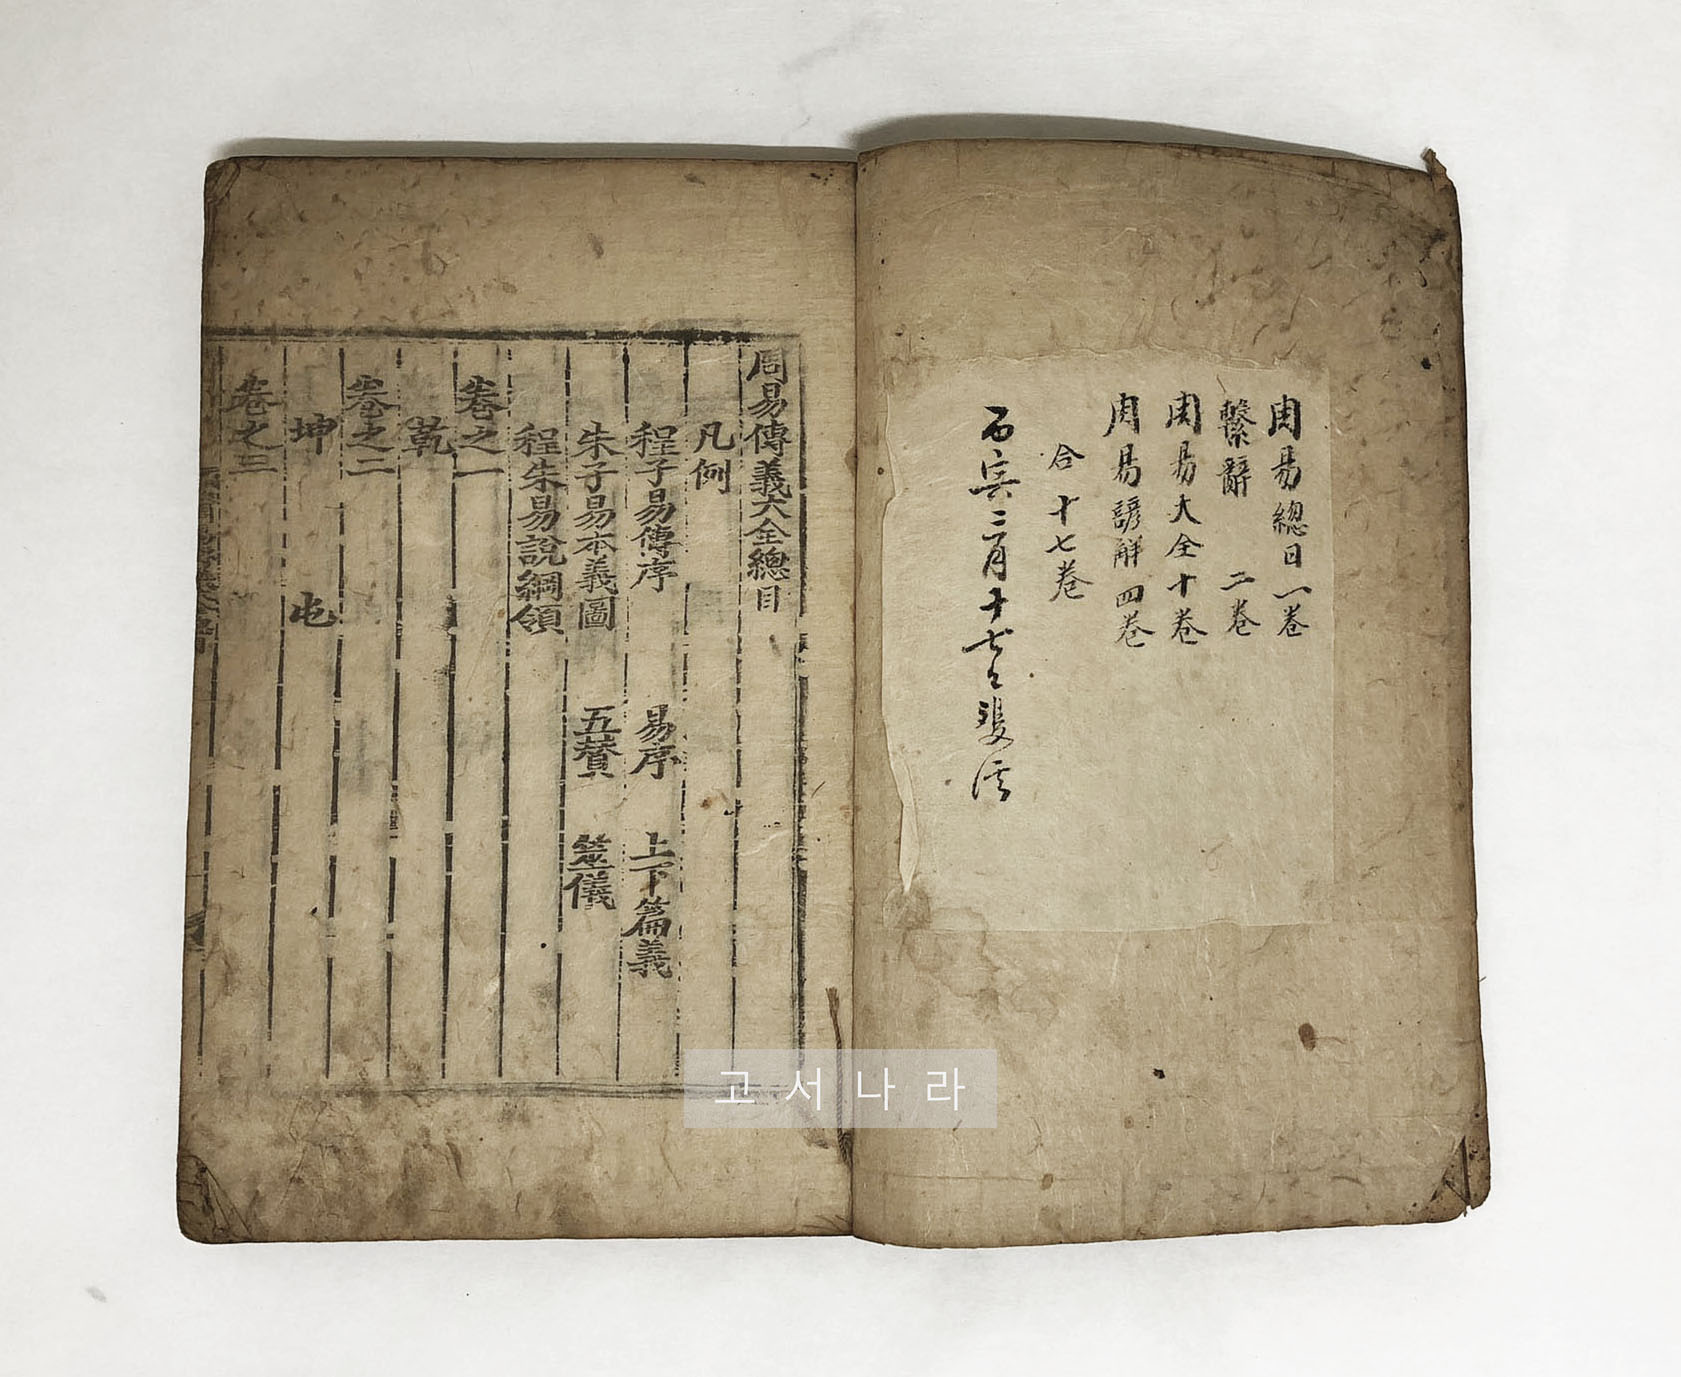 周易總目一卷
繫辭 二卷
周易大全十卷
周易諺解四卷
合十七卷
丙寅二月十七日
周易傳義大全總目
凡例
程子易傳序 易序 上下篇義
朱子易本義圖 五贊 筮儀
程朱易說綱領
卷之一
乾
卷之二
坤 屯
卷之三
고서나라